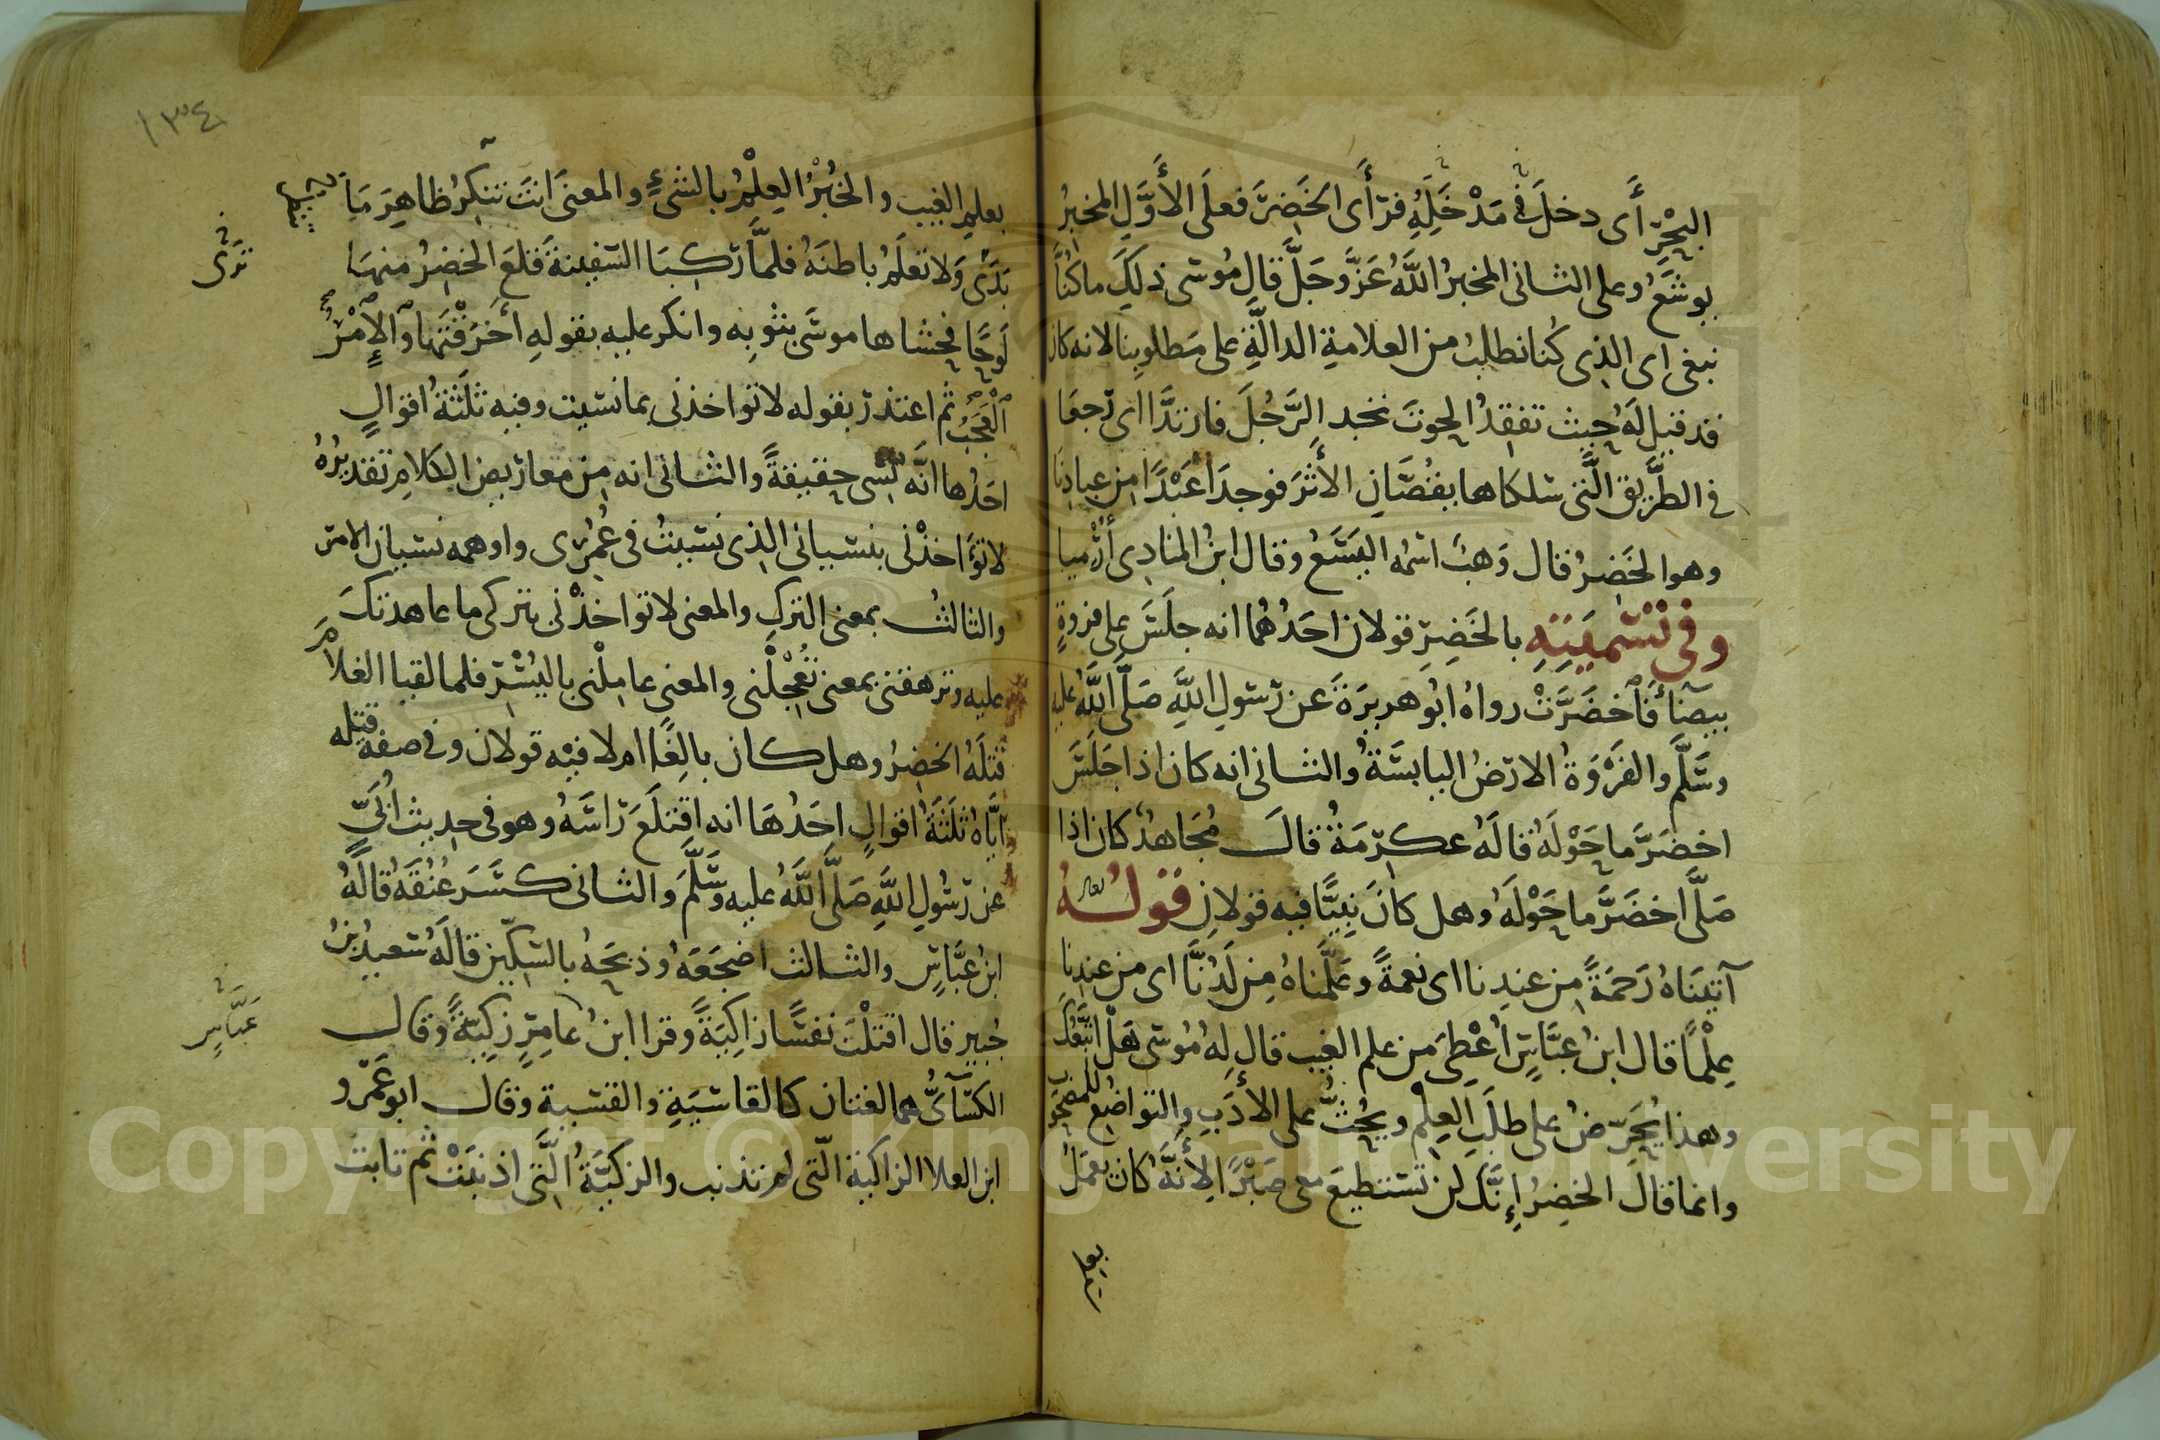 البحر أي دخل في مدخله فرأى الخضر فعلى الأول المخبر
يوشع وعلى الثاني المخبر الله عز وجل قال موسى ذلك ما كنا
نبغي اي الذي كنا نطلب من العلامة الدالة على مطلوبنا لانه كان
قد قيل له حيث تفقد الحوت تجد الرجل فارتدا اي رجعا
في الطريق التي سلكاها يقصان الأثر فوجدا عبدا من عبادنا
وهو الخضر قال وهب اسمه اليسع وقال ابن المنادي أرميا
وفي تسميته بالخضر قولان احدهما انه جلس على فروة
بيضآء فاخضرت رواه ابو هريرة عن رسول الله صلى الله عليه
وسلم والفروة الارض اليابسة والثاني انه كان اذا جلس
اخضر ما حوله قاله عكرمة قال مجاهد كان اذا
صلى اخضر ما حوله وهل كان نبيا فيه قولان قوله تعالى
آتيناه رحمة من عندنا اي نعمة وعلمناه من لدنا اي من عندنا
علما قال ابن عباس اعطي من علم الغيب قال له موسى هل اتبعك
وهذا يحرض على طلب العلم ويحث على الأدب والتواضع للمصحوب
وانما قال الخضر إنك لن تستطيع معي صبرا لأنه كان يعمل
١٣٤
بعلم الغيب والخبر العلم بالشيء والمعنى انت تنكر ظاهر ما
ترى ولا تعلم باطنه فلما ركبا السفينة قلع الخضر منها
ترى
لوحا فحشاها موسى بثوبه وانكر عليه بقوله أخرقتها والإمر
العجب ثم اعتذر بقوله لا تواخذني بما نسيت وفيه ثلثة اقوال
احدها انه نسي حقيقة والثاني انه من معاريض الكلام تقديره
لا تؤاخذني بنسياني الذي نسيت في عمري واوهمه نسيان الامر
والثالث بمعنى الترك والمعنى لا تواخذني بتركي ما عاهدتك
عليه وترهقني بمعنى تعجلني والمعنى عاملني باليسر فلما لقيا الغلام
قتله الخضر وهل كان بالغا ام لا فيه قولان وفي صفة قتله
اياه ثلثة اقوال احدها انه اقتلع راسه وهو في حديث أبي
عن رسول الله صلى الله عليه وسلم والثاني كسر عنقه قاله
ابن عباس والثالث اضجعه وذبحه بالسكين قاله سعيد بن
عباس
جبير قال اقتلت نفسا زاكية وقرا ابن عامر زكية وقال
الكسآئي هما لغتان كالقاسية والقسية وقال ابو عمرو
ابن العلا الزاكية التي لم تذنب والزكية التي اذنبت ثم تابت
Copyright © King Saud University